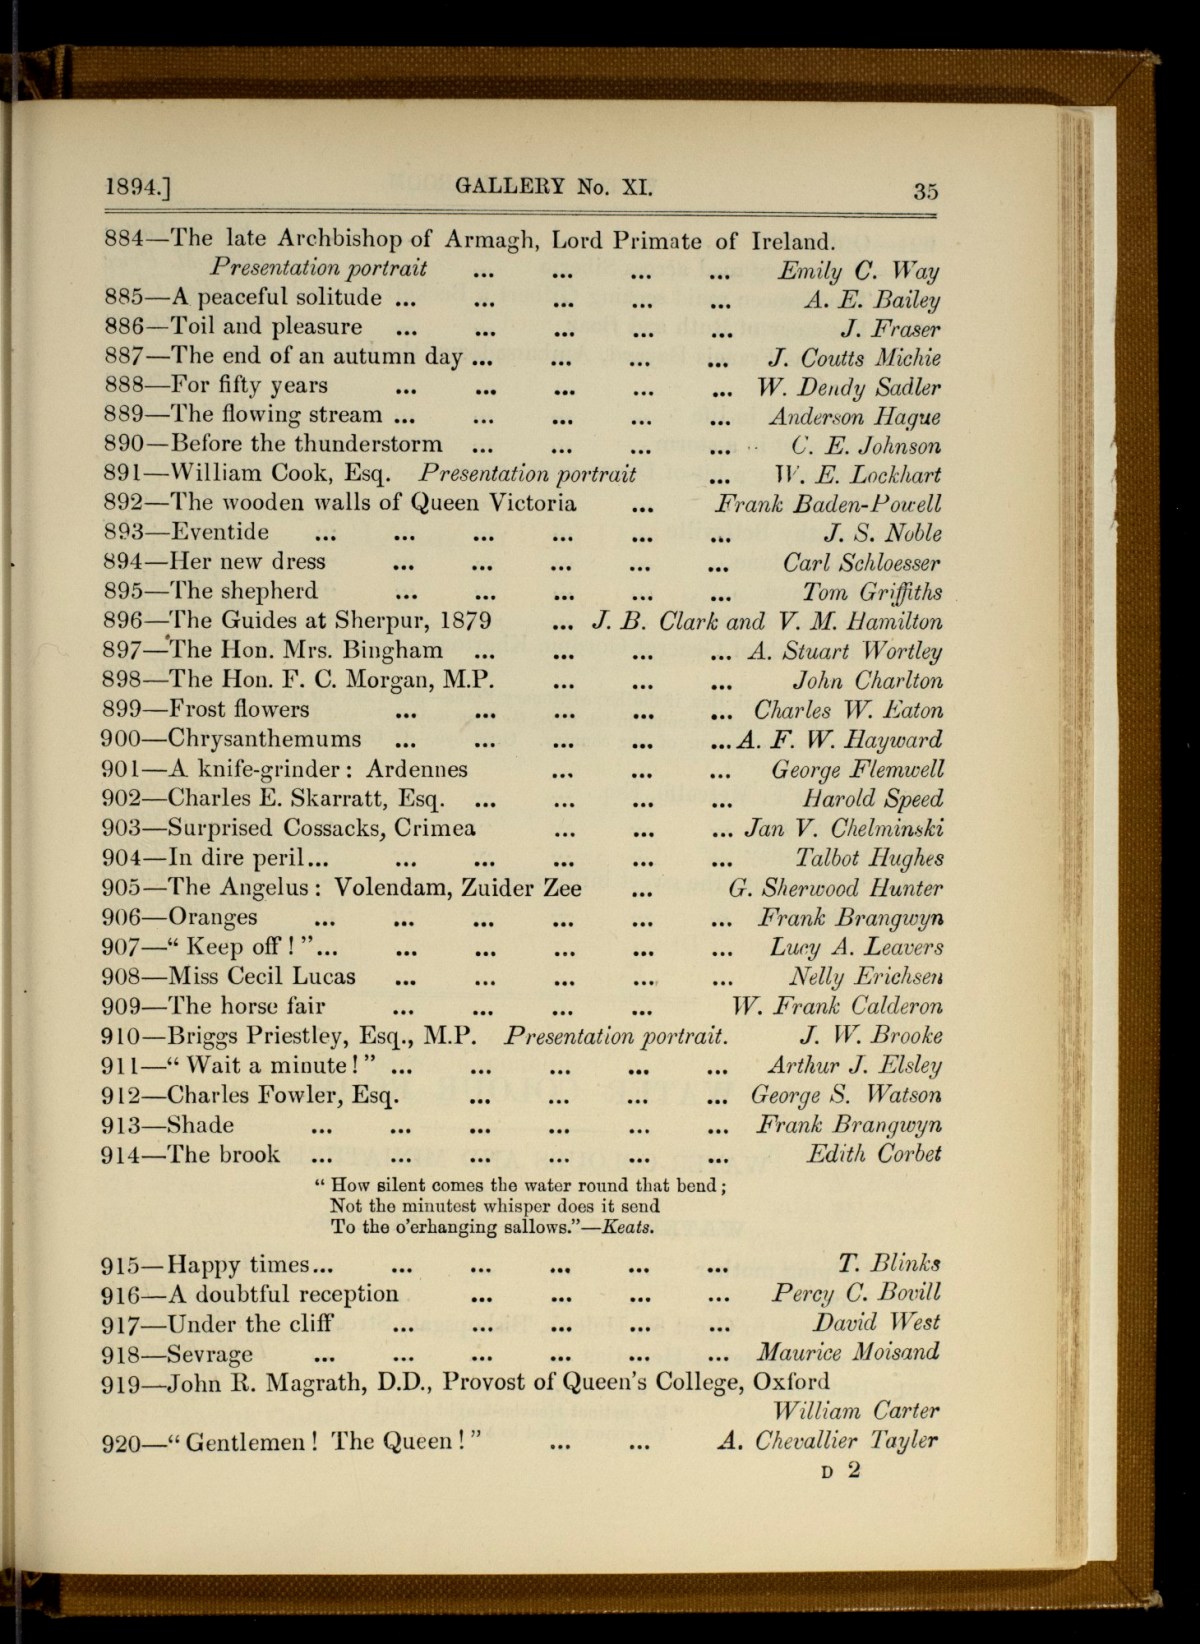 1894.] GALLERY No. XI. 35
884—The late Archbishop of Armagh, Lord Primate of Ireland.
Presentation portrait ... ... ... ... Emily C. Way
885—A peaceful solitude ... ... ... ... ... A. E. Bailey
886—Toil and pleasure ... ... ... ... ... J. Fraser
887—The end of an autumn day ... ... ... ... J. Coutts Michie
888—For fifty years ... ... ... ... ... W. Dendy Sadler
889—The flowing stream ... ... ... ... ... Anderson Hague
890—Before the thunderstorm ... ... ... ... C. E. Johnson
891—William Cook, Esq. Presentation portrait ... W. E. Lockhart
892—The wooden walls of Queen Victoria ... Frank Baden-Powell
893—Eventide ... ... ... ... ... ... J. S. Noble
894—Her new dress ... ... ... ... ... Carl Schloesser
895—The shepherd ... ... ... ... ... Tom Griffiths
896—The Guides at Sherpur, 1879 ... J. B. Clark and V. M. Hamilton
897—The Hon. Mrs. Bingham ... ... ... ... A. Stuart Wortley
898—The Hon. F. C. Morgan, M.P. ... ... ... John Charlton
899—Frost flowers ... ... ... ... ... Charles W. Eaton
900—Chrysanthemums ... ... ... ... ... A. F. W. Hayward
901—A knife-grinder: Ardennes ... ... ... George Flemwell
902—Charles E. Skarratt, Esq. ... ... ... ... Harold Speed
903—Surprised Cossacks, Crimea ... ... ... Jan V. Chelminski
904—In dire peril... ... ... ... ... ... Talbot Hughes
905—The Angelus: Volendam, Zuider Zee ... G. Sherwood Hunter
906—Oranges ... ... ... ... ... ... Frank Brangwyn
907—“Keep off!”... ... ... ... ... ... Lucy A. Leavers
908—Miss Cecil Lucas ... ... ... ... ... Nelly Erichsen
909—The horse fair ... ... ... ... W. Frank Calderon
910—Briggs Priestley, Esq., M.P. Presentation portrait. J. W. Brooke
911—“Wait a minute!” ... ... ... ... ... Arthur J. Elsley
912—Charles Fowler, Esq. ... ... ... ... George S. Watson
913—Shade ... ... ... ... ... ... Frank Brangwyn
914—The brook ... ... ... ... ... ... Edith Corbet
“How silent comes the water round that bend;
Not the minutest whisper does it send
To the o’erhanging sallows.”—Keats.
915—Happy times... ... ... ... ... ... T. Blinks
916—A doubtful reception ... ... ... ... Percy C. Bovill
917—Under the cliff ... ... ... ... ... David West
918—Sevrage ... ... ... ... ... ... Maurice Moisand
919—John R. Magrath, D.D., Provost of Queen’s College, Oxford
William Carter
920—“Gentlemen! The Queen!” ... ... A. Chevallier Tayler
D 2